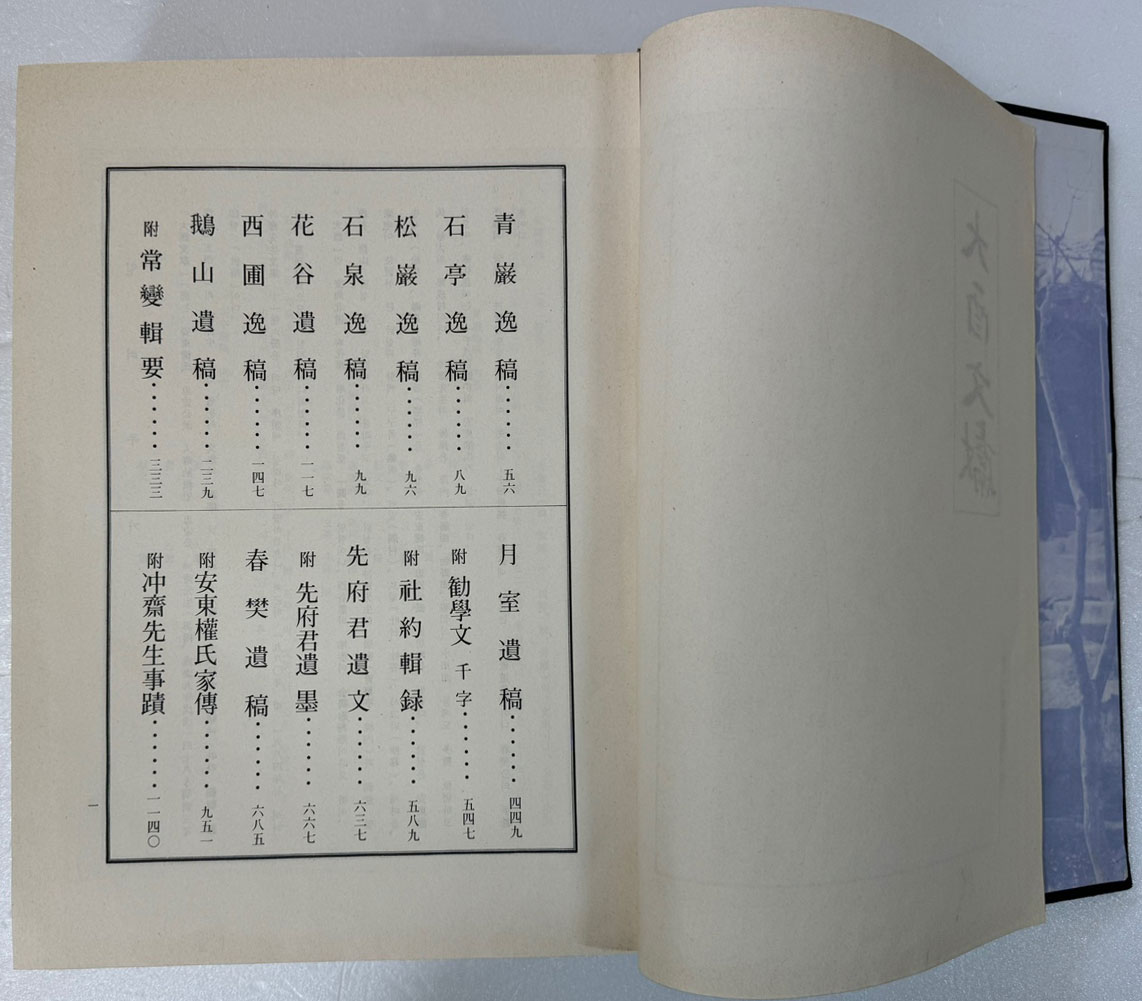 青巖逸稿·······五六
石亭逸稿·······八九
松巖逸稿·······九六
石泉逸稿·······九九
花谷遺稿·······一一七
西圃逸稿·······一四七
鵝山遺稿·······二三九
附 常變輯要·······三三三
月室遺稿·······四四九
附 勧學文 千字·······五四七
附 社約輯録·······五八九
先府君遺文·······六三七
附 先府君遺墨·······六六七
春樊遺稿·······六八五
附 安東權氏家傳·······九五一
附 冲齋先生事蹟·······一一四〇
一